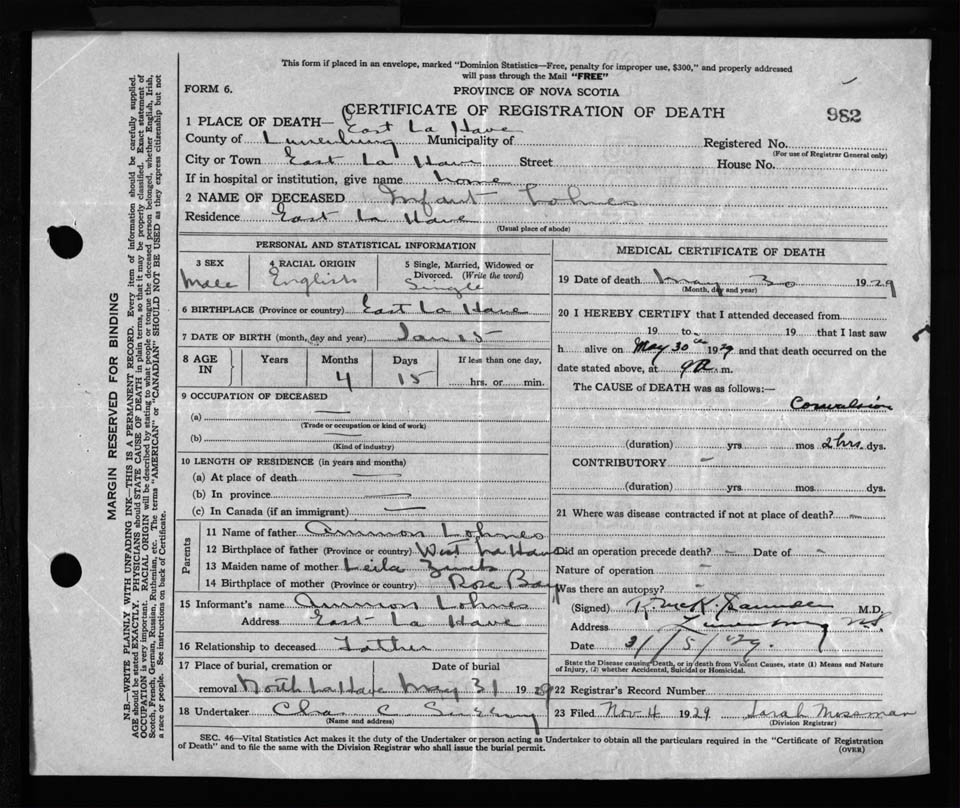 This form if placed in an envelope, marked "Dominion Statistics—Free, penalty for improper use, $300," and properly addressed
will pass through the Mail "FREE"
FORM 6.
PROVINCE OF NOVA SCOTIA
CERTIFICATE OF REGISTRATION OF DEATH
982
1 PLACE OF DEATH— East La Have
County of Lunenburg Municipality of
Registered No.
(For use of Registrar General only)
City or Town East La Have Street
House No.
If in hospital or institution, give name none
2 NAME OF DECEASED Infant Lohnes
Residence East La Have
(Usual place of abode)
PERSONAL AND STATISTICAL INFORMATION
3 SEX
Male
4 RACIAL ORIGIN
English
5 Single, Married, Widowed or
Divorced. (Write the word)
Single
6 BIRTHPLACE (Province or country) East La Have
7 DATE OF BIRTH (month, day and year) Jan 15
8 AGE
IN
Years
Months
4
Days
15
If less than one day,
hrs. or min.
9 OCCUPATION OF DECEASED
(a) —
(Trade or occupation or kind of work)
(b) —
(Kind of industry)
10 LENGTH OF RESIDENCE (in years and months)
(a) At place of death —
(b) In province —
(c) In Canada (if an immigrant) —
Parents
11 Name of father Ammon Lohnes
12 Birthplace of father (Province or country) West La Have
13 Maiden name of mother Leila
14 Birthplace of mother (Province or country) Rose Bay
15 Informant's name Ammon Lohnes
Address East La Have
16 Relationship to deceased Father
17 Place of burial, cremation or
removal North La Have
Date of burial
May 31 1929
18 Undertaker Chas C
(Name and address)
MEDICAL CERTIFICATE OF DEATH
19 Date of death May 30 1929
(Month, day and year)
20 I HEREBY CERTIFY that I attended deceased from
19 to 19 that I last saw
h alive on May 30th 1929 and that death occurred on the
date stated above, at 9 a. m.
The CAUSE of DEATH was as follows:—
Convulsion
(duration) yrs mos 2 hrs. dys.
CONTRIBUTORY –
(duration) yrs mos dys.
21 Where was disease contracted if not at place of death? –
Did an operation precede death? – Date of –
Nature of operation –
Was there an autopsy? –
(Signed) R. McK. Saunders M.D.
Address Lunenburg N.S.
Date 31/5/29.
State the Disease causing Death, or in death from Violent Causes, state (1) Means and Nature
of Injury, (2) whether Accidental, Suicidal or Homicidal.
22 Registrar's Record Number
23 Filed Nov 4 1929 Sarah Mossman
(Division Registrar)
SEC. 46—Vital Statistics Act makes it the duty of the Undertaker or person acting as Undertaker to obtain all the particulars required in the "Certificate of Registration
of Death" and to file the same with the Division Registrar who shall issue the burial permit.
(OVER)
MARGIN RESERVED FOR BINDING
N.B.—WRITE PLAINLY WITH UNFADING INK—THIS IS A PERMANENT RECORD. Every item of information should be carefully supplied.
AGE should be stated EXACTLY. PHYSICIANS should STATE CAUSE OF DEATH in plain terms, so that it may be properly classified. Exact statement of
OCCUPATION is very important. RACIAL ORIGIN will be described by stating to what people or tongue the deceased person belonged, whether English, Irish,
Scotch, French, German, Russian, Ruthenian, etc. The terms "AMERICAN" or "CANADIAN" SHOULD NOT BE USED as they express citizenship but not
a race or people. See instructions on back of Certificate.